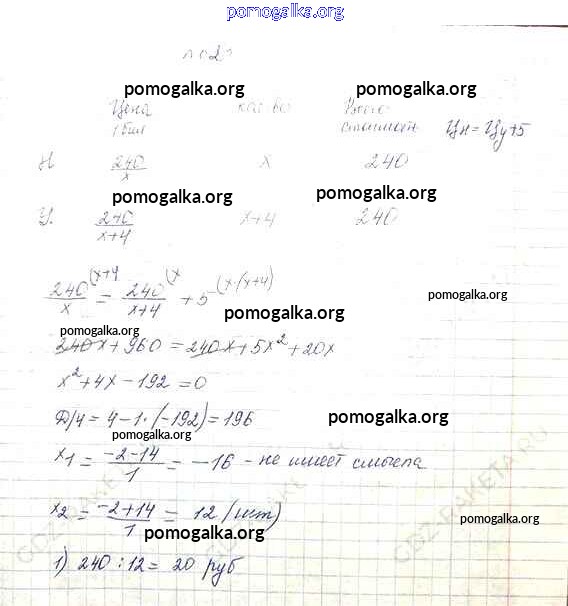 pomogalka.org
pomogalka.org pomogalka.org
Цена кол-во Всего
1 бил стоимость Цн = Цу+5
pomogalka.org
Н 240/x x 240
pomogalka.org pomogalka.org
У. 240/x+4 x+4 240
240/x (x+4 = 240/x+4 (x + 5 (x·(x+4)
pomogalka.org
pomogalka.org
pomogalka.org
240x+960 = 240x+5x²+20x
x²+4x-192=0
Д/4 = 4-1·(-192)=196
pomogalka.org
pomogalka.org
x1 = -2-14/1 = -16 - не имеет смысла
x2 = -2+14/1 = 12 (шт)
pomogalka.org
pomogalka.org
1) 240:12= 20 руб